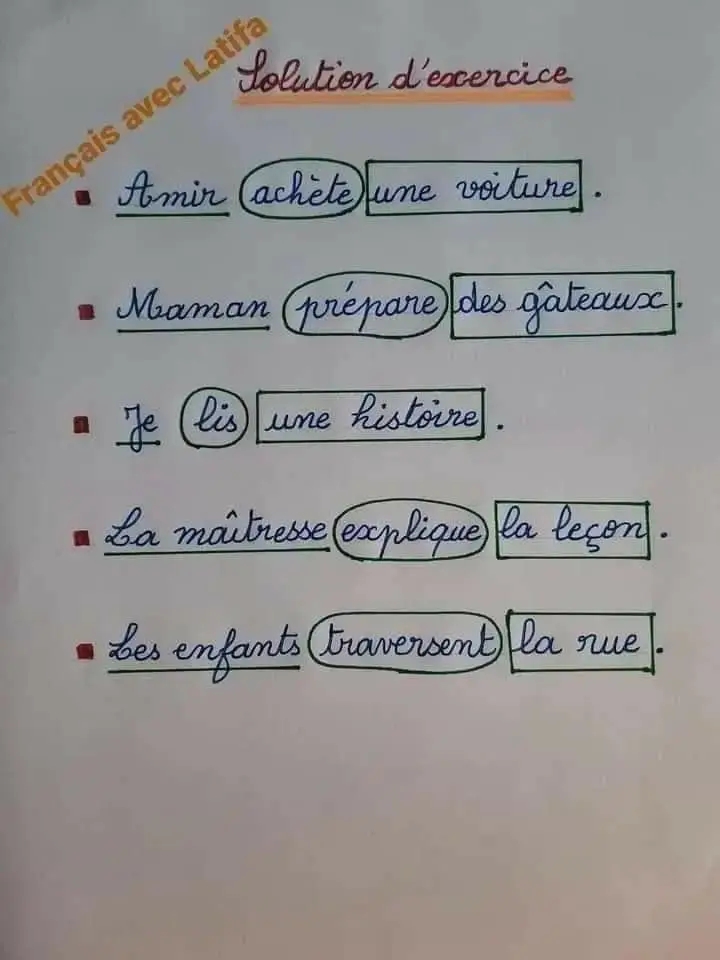 Français avec Latifa
Solution d'excercice
Amir achète une voiture.
Maman prépare des gâteaux.
Je lis une histoire.
La maîtresse explique la leçon.
Les enfants traversent la rue.